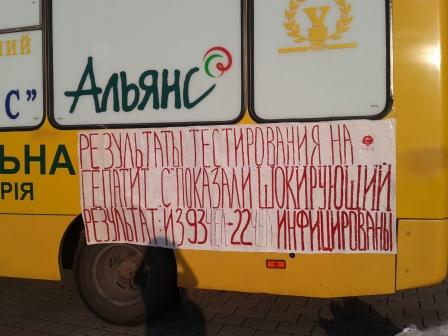 ний
С"
Альянс
V
ЛЬНА
РІЯ
РЕЗУЛЬТАТЫ ТЕСТИРОВАНИЯ НА
ГЕПАТИТ С ПОКАЗАЛИ ШОКИРУЮЩИЙ
РЕЗУЛЬТАТ: ИЗ 93 ЧЕЛ-22 ЧЕЛ ИНФИЦИРОВАНЫ